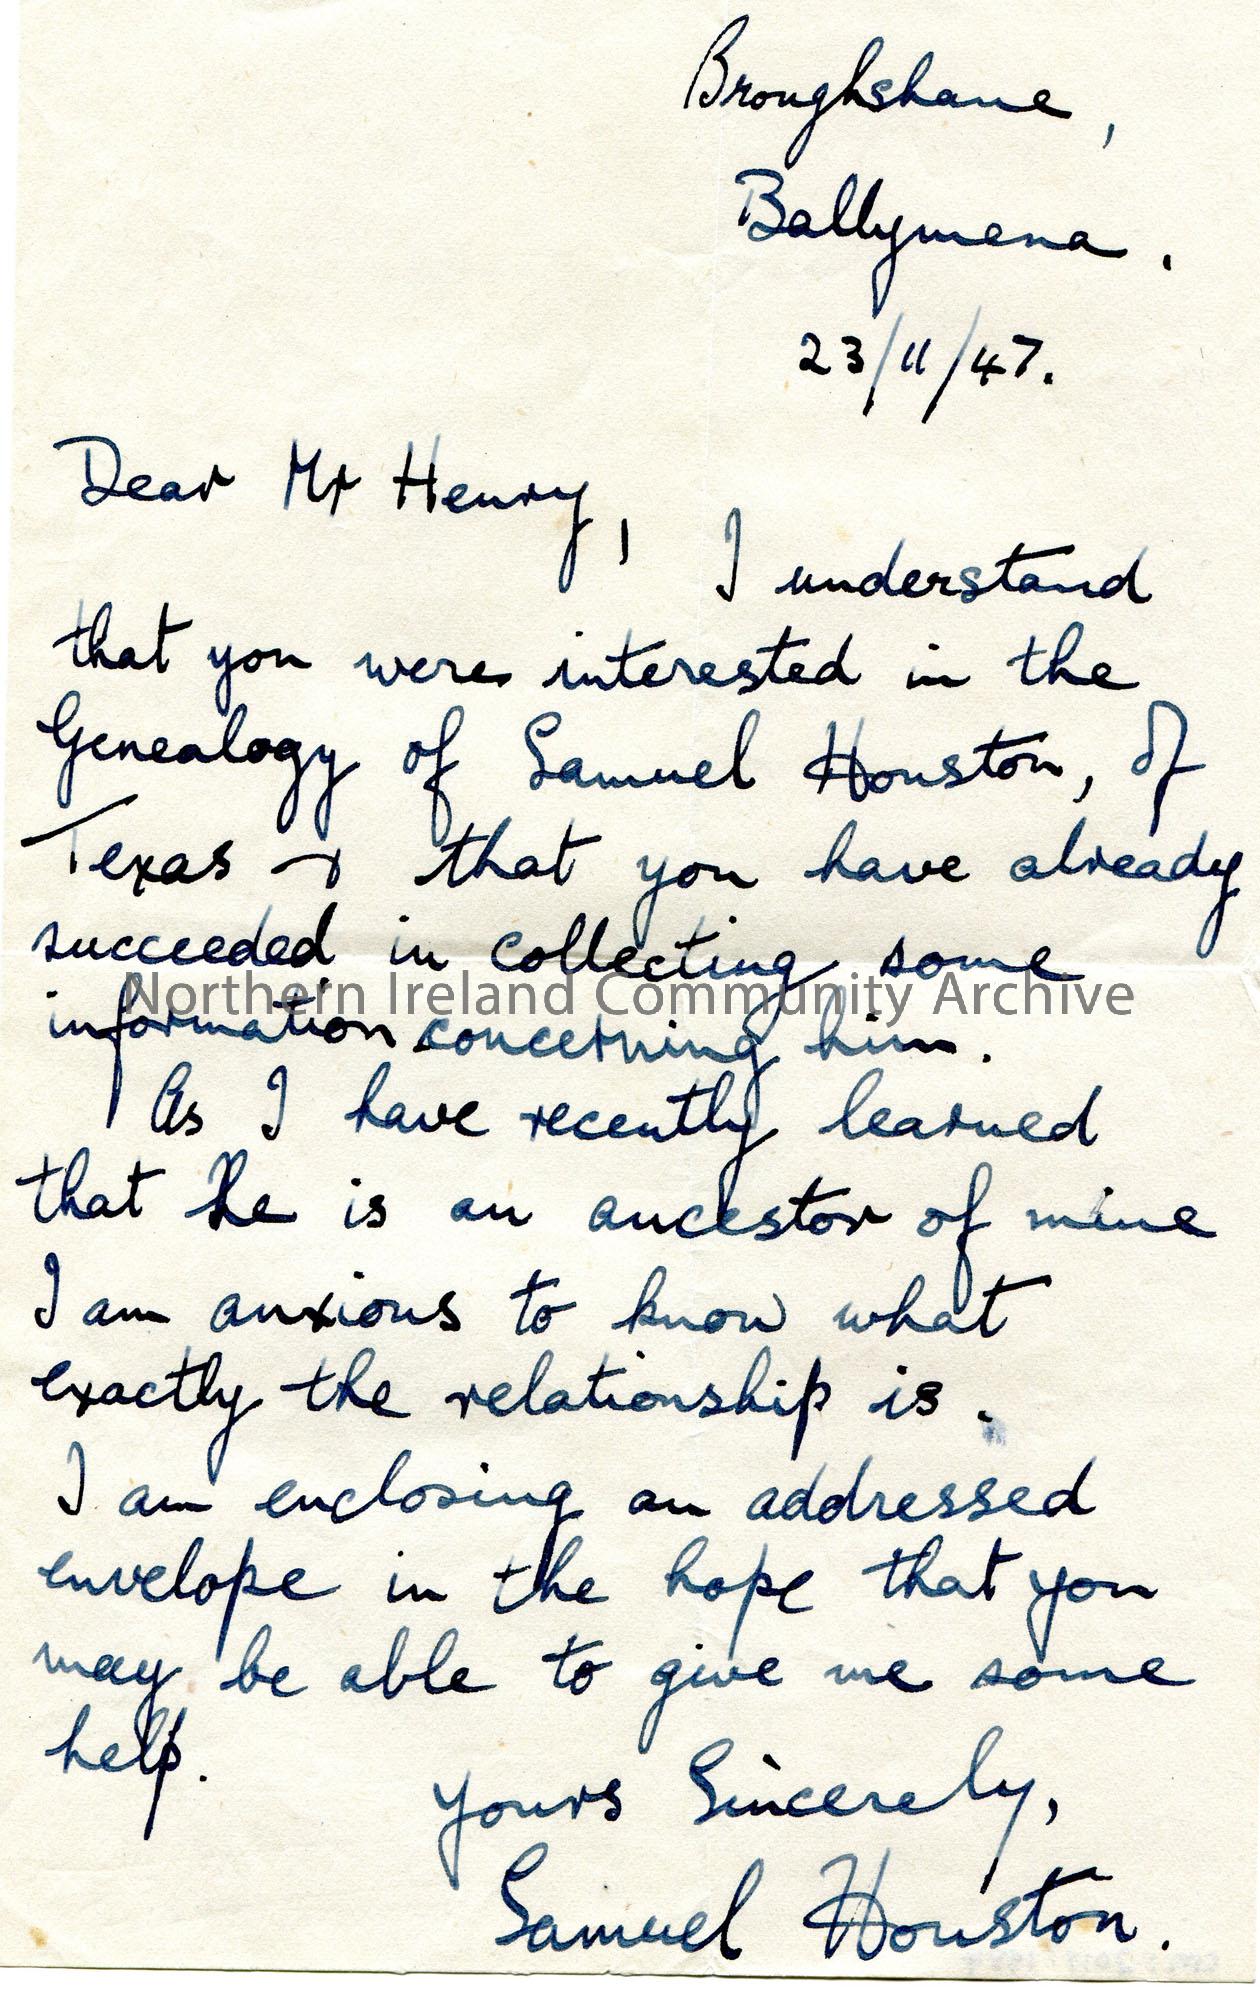 Broughshane,
Ballymena.
23/11/47.
Dear Mr Henry,
I understand
that you were interested in the
Genealogy of Samuel Houston, of
Texas & that you have already
succeeded in collecting some
Northern Ireland Community Archive
information concerning him.
As I have recently learned
that he is an ancestor of mine
I am anxious to know what
exactly the relationship is.
I am enclosing an addressed
envelope in the hope that you
may be able to give me some
help.
Yours Sincerely,
Samuel Houston.